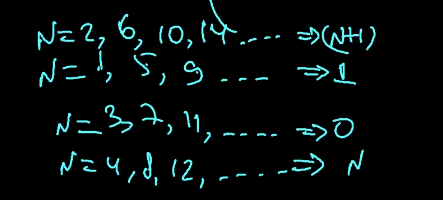 N=2, 6, 10, 14..... ⇒(N+1)
N=1, 5, 9 --- ⇒1
N=3,7, 11, ..... ⇒0
N=4, 8, 12, -....-⇒ N